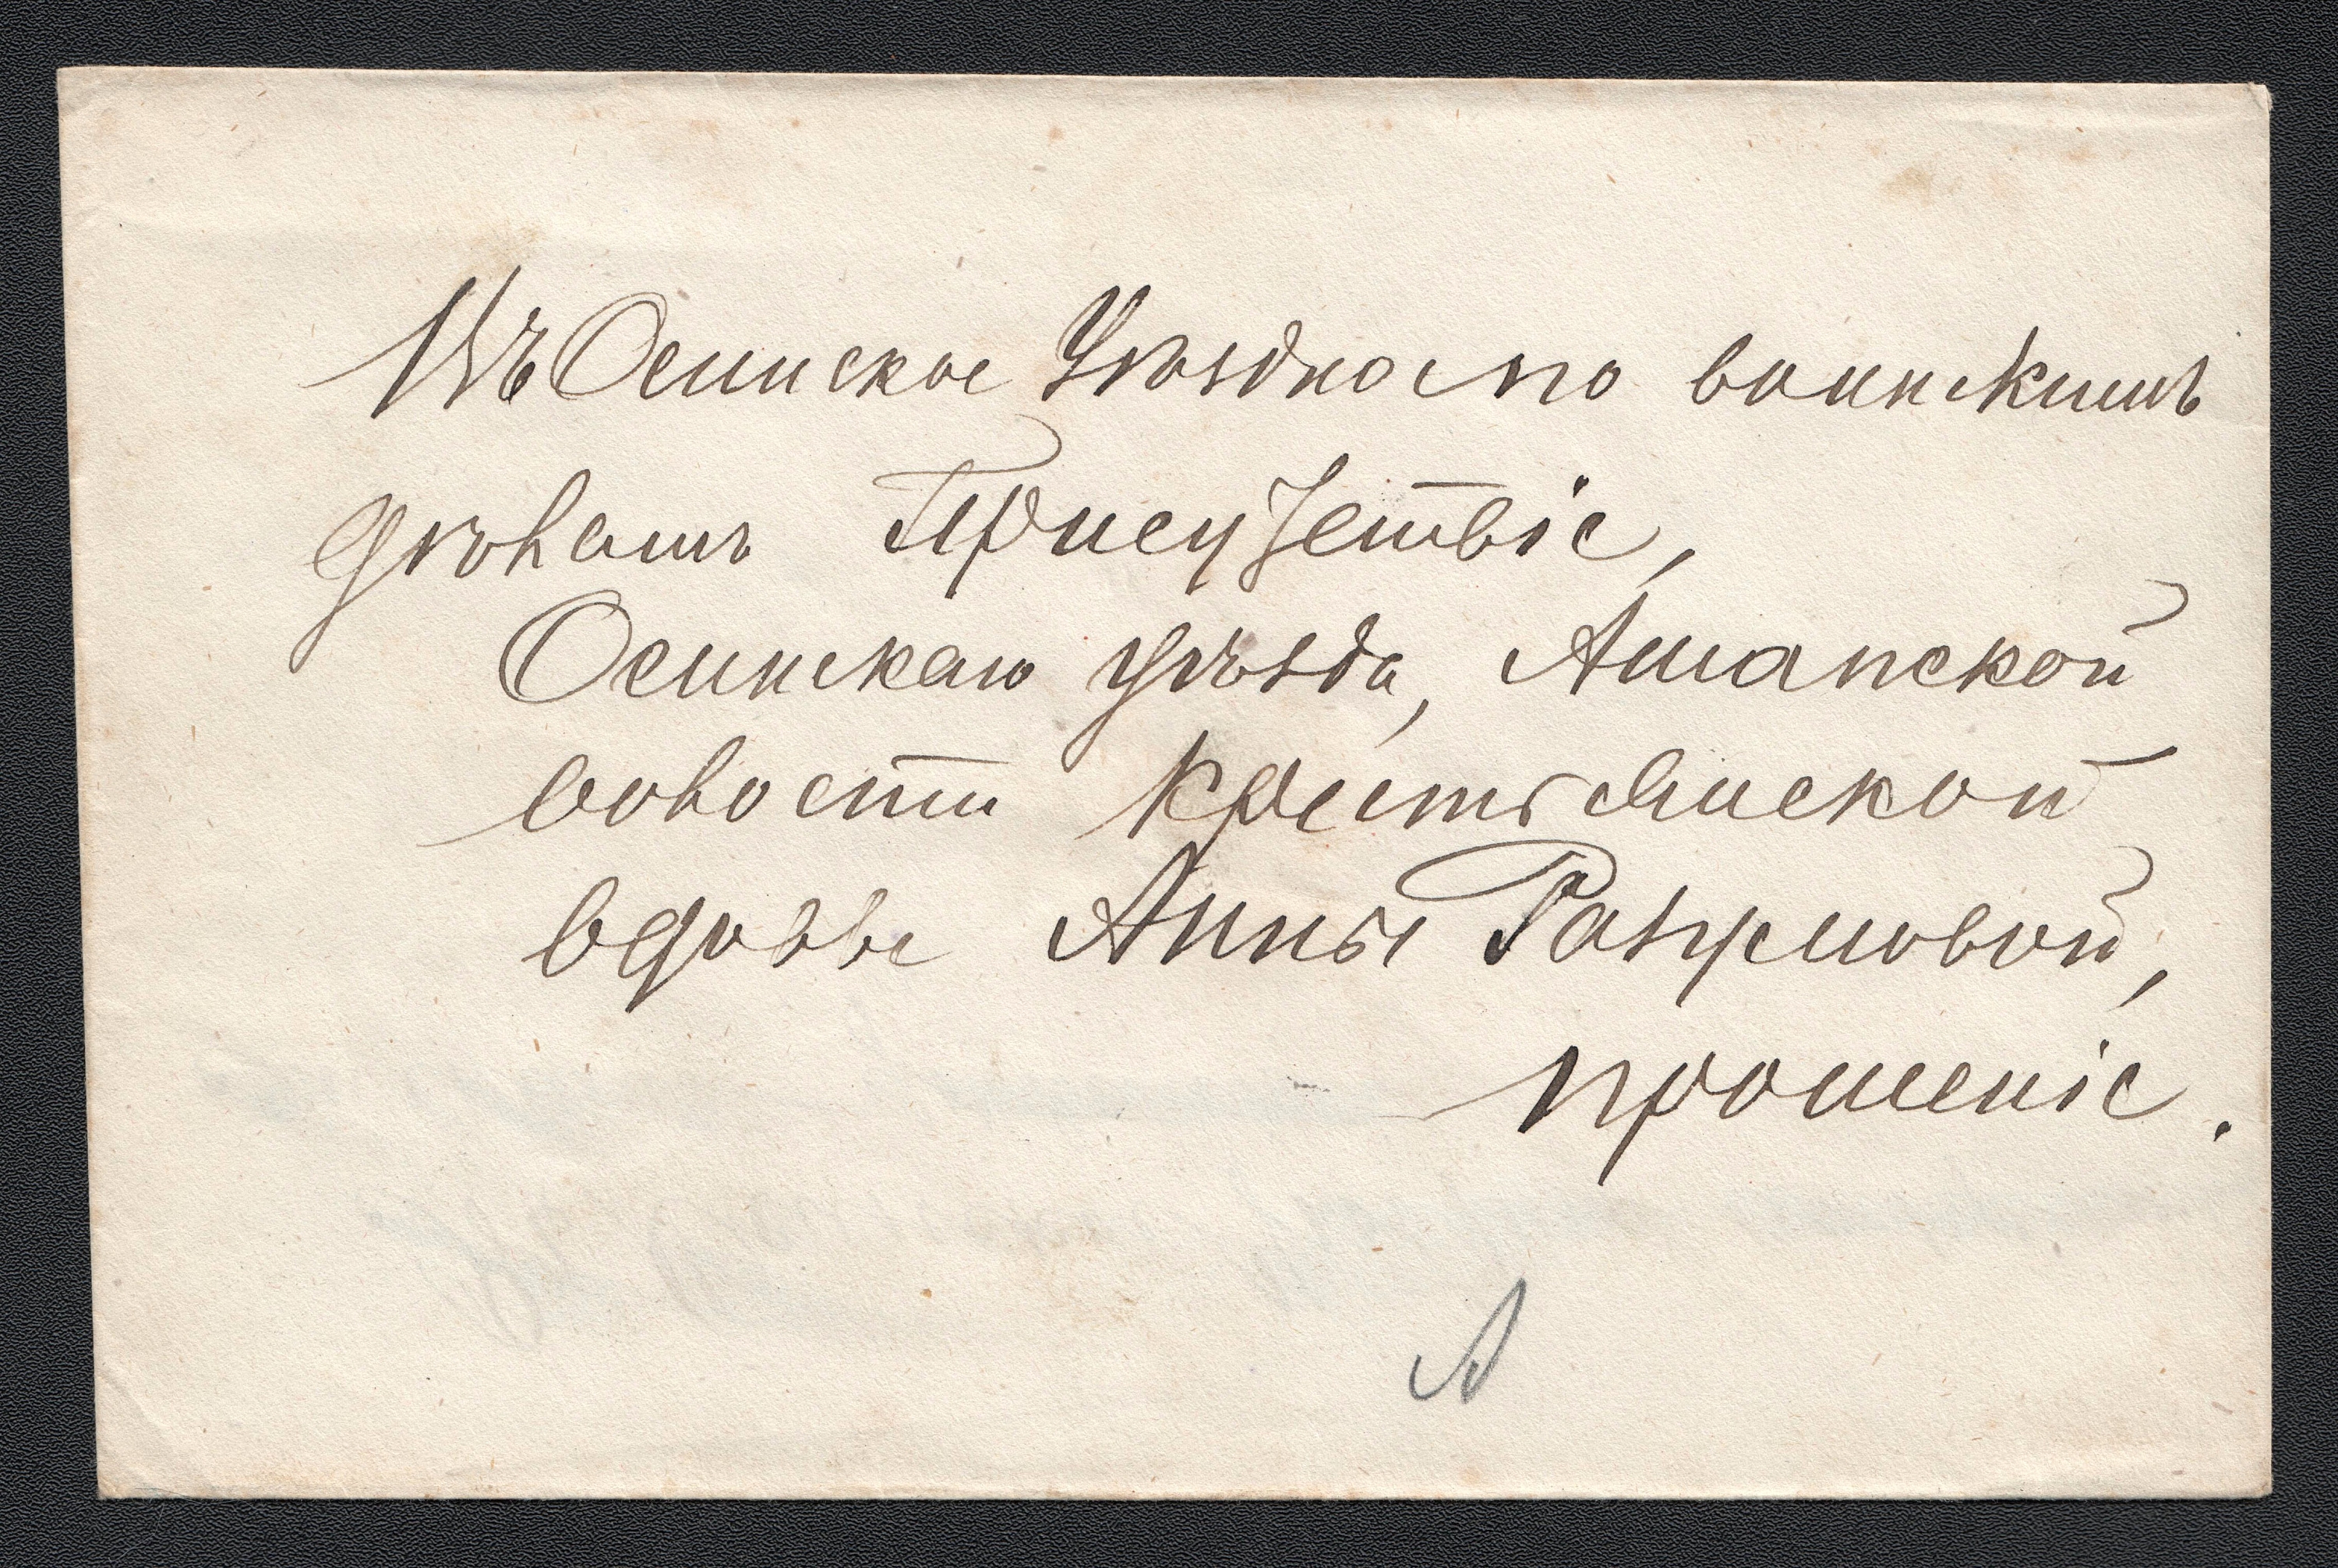 Въ Осинское Уѣздное по воинскимъ
дѣламъ Присутствіе,
Осинскаго уѣзда, Ашапской
волости крестьянской
вдовы Анны Разумовой,
прошеніе.